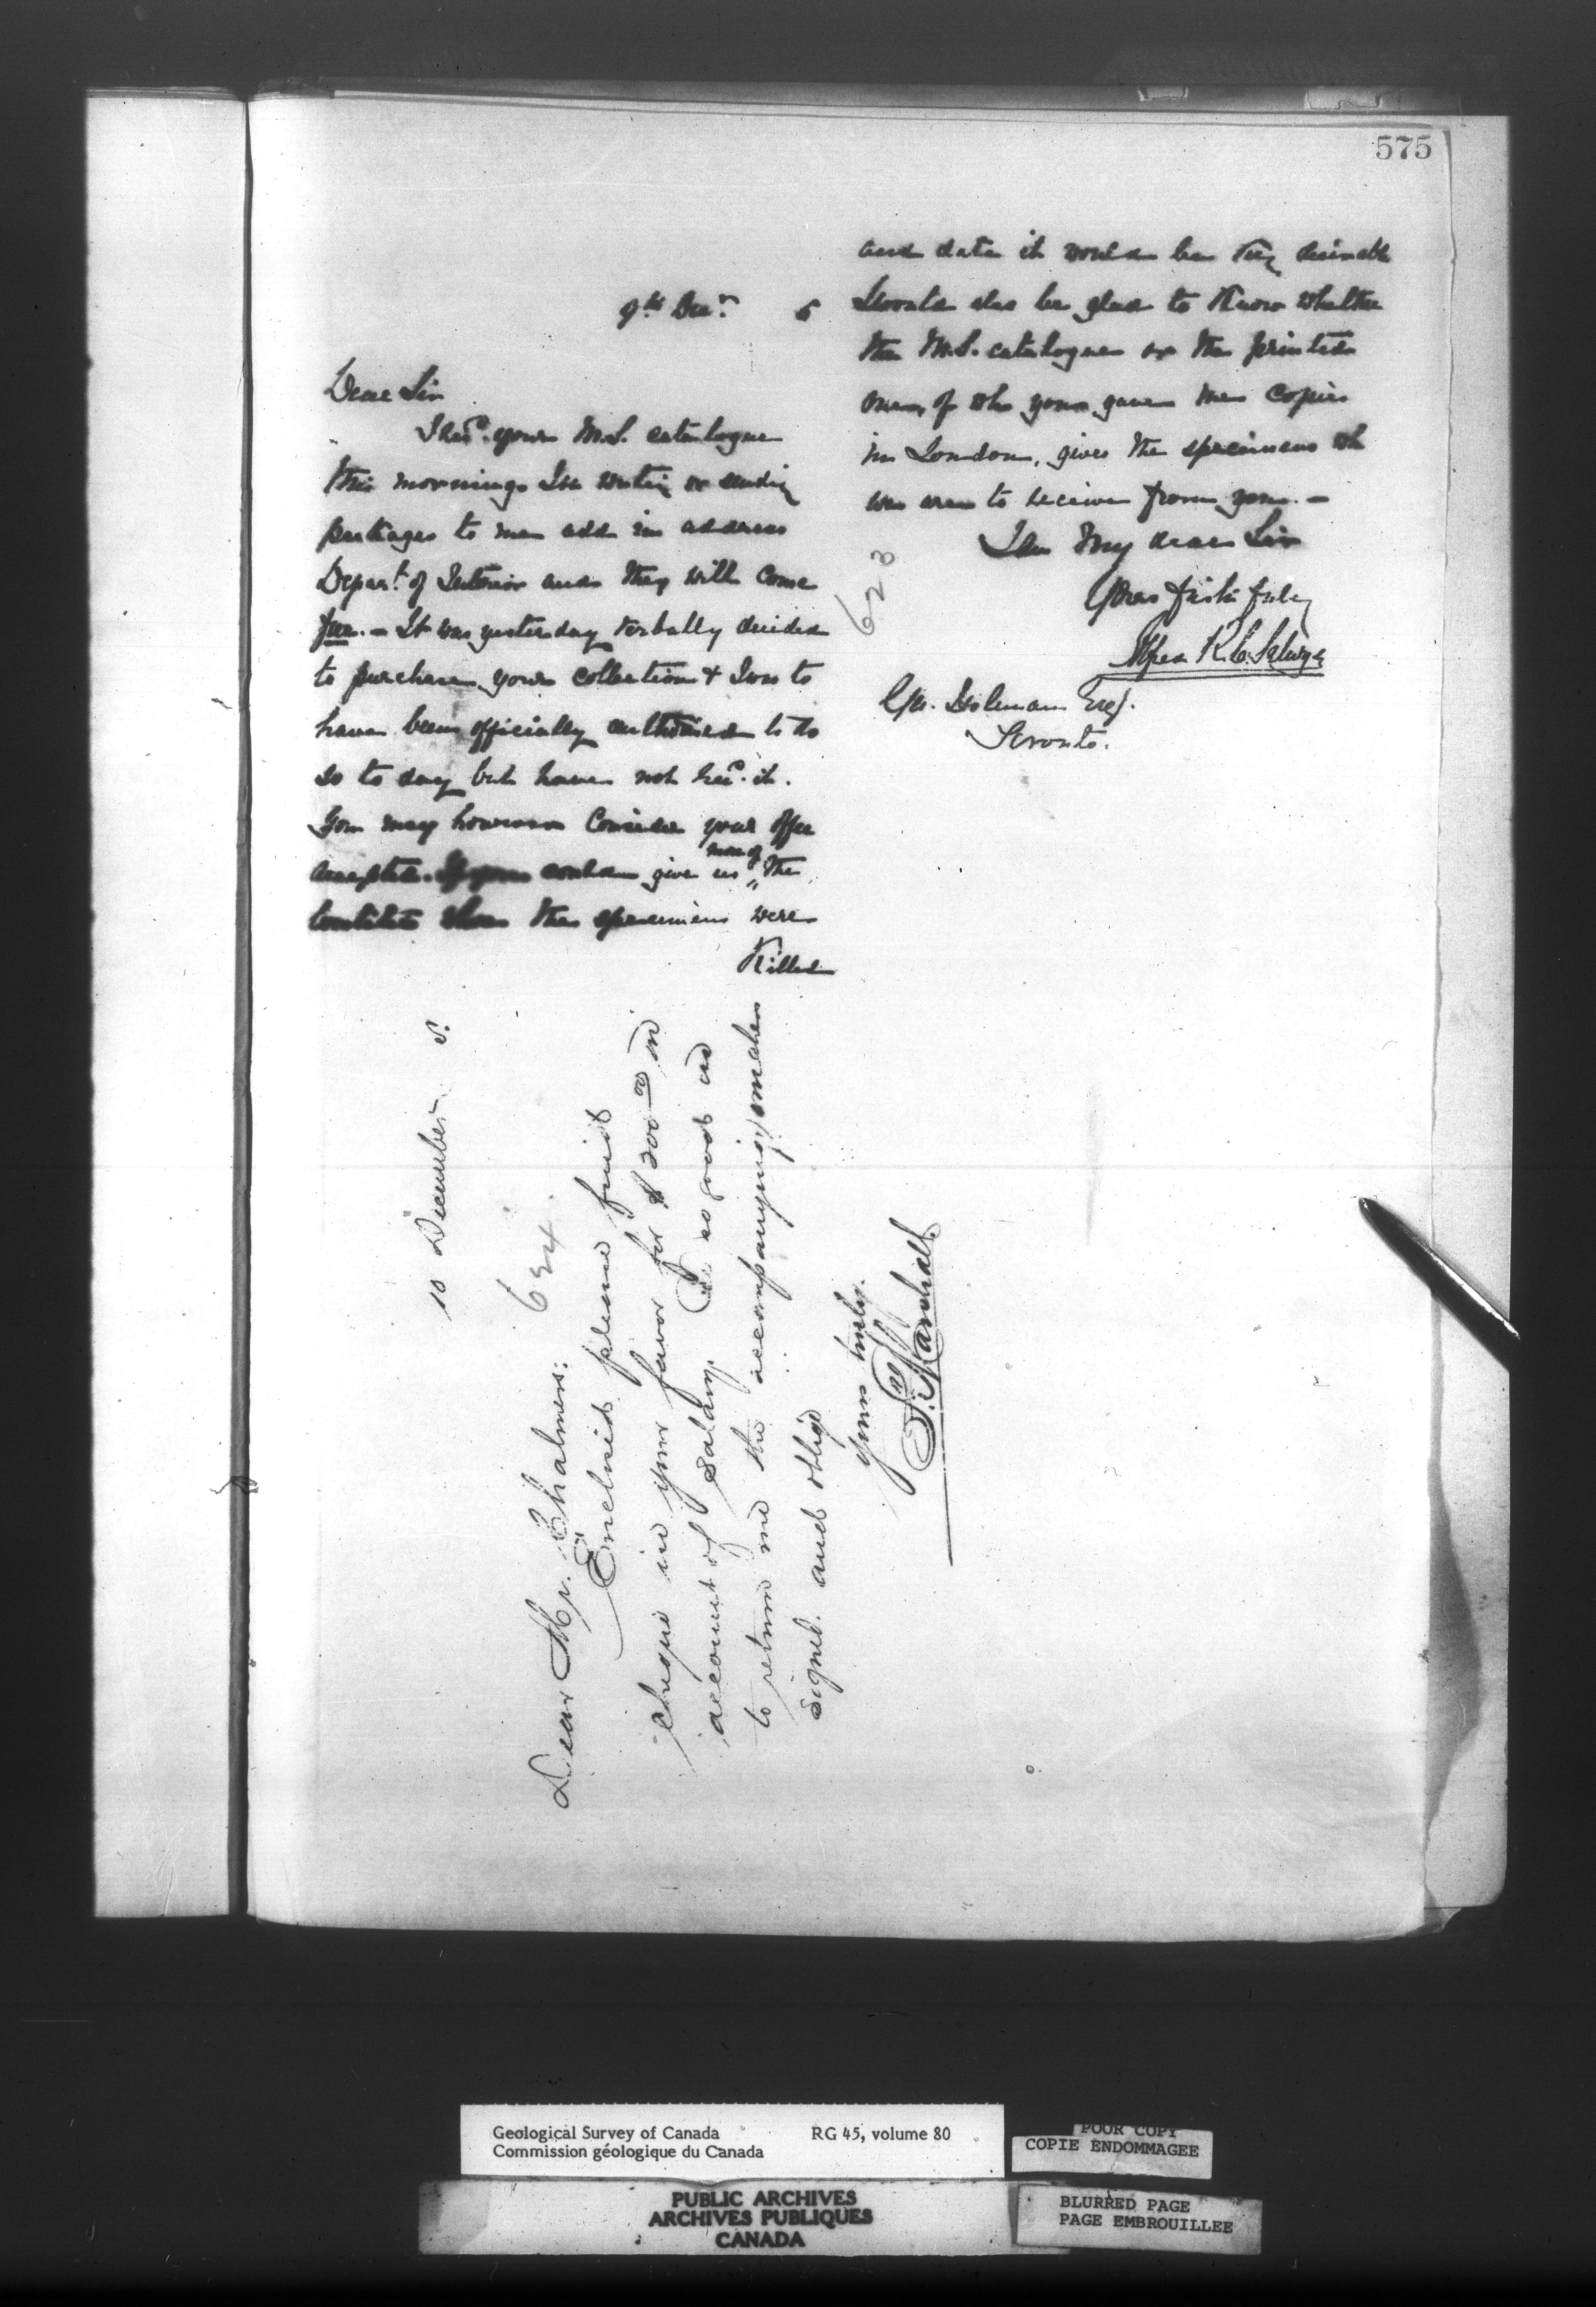 575
9th Decr. 5
Dear Sir
I recd. your M.S. catalogue
this morning. In writing or sending
packages to me add in address
Depart. of Interior and they will come
free. — It was yesterday verbally decided
to purchase your collection & I was to
have been officially authorised to do
so to day but have not recd. it.
You may however consider your offer
accepted. If you could give us more of the
localities where the specimens were
Killed
and date it would be very desirable
I would also be glad to know whether
the M.S. catalogue or the printed
ones, of wh you gave me copies
in London, gives the specimens wh
we are to receive from you. —
I am my dear Sir
Yours faithfully
Alfred R. C. Selwyn
Esq.
Toronto.
623
10 December 5.
624.
Dear Mr. Chalmers:
Enclosed please find
cheque in your favor for $200 00 on
account of Salary. Be so good as
to return me the accompanying
signed and oblige
Yours truly.
Marshall
Geological Survey of Canada RG 45, volume 80
Commission géologique du Canada
POOR COPY
COPIE ENDOMMAGEE
PUBLIC ARCHIVES
ARCHIVES PUBLIQUES
CANADA
BLURRED PAGE
PAGE EMBROUILLEE